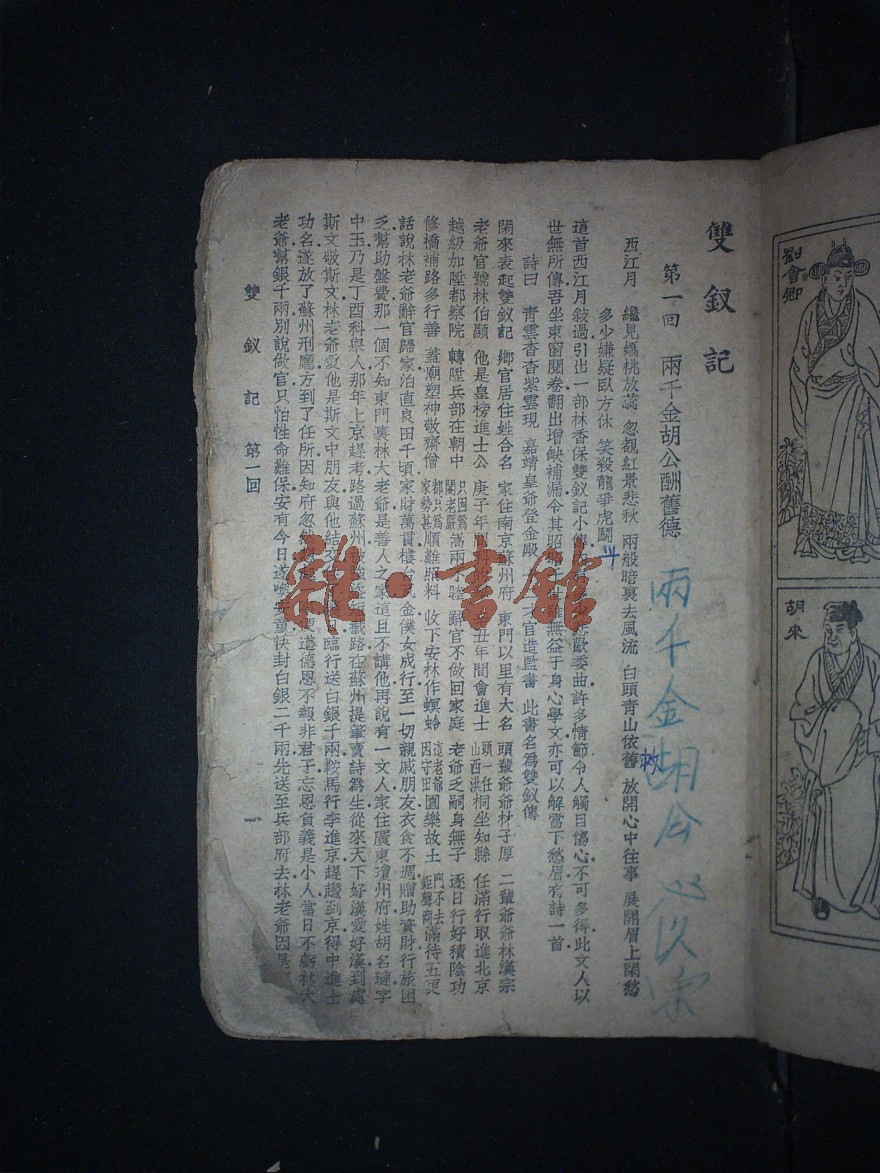 劉會卿
胡來
雙釵記
第一回　兩千金胡公酬舊德
西江月　纔見嬌桃放蕊　忽覩紅景悲秋　兩般暗裏去風流　白頭青山依舊　放開心中往事　展開眉上閑愁
多少嫌疑臥方休　笑殺龍爭虎鬭
這首西江月敍過引出一部林香保雙釵記小傳　悲歡委曲許多情節令人觸目傷心不可多得此文人以
世無所傳吾坐東窗閱卷翻出增缺補漏令其昭　世雖無益于身心學文亦可以解當下愁眉有詩一首
詩曰　青雲杳杳紫雲現　嘉靖皇爺登金殿　才官造監書　此書名為雙釵傳
閑來表起雙釵記　鄉官居住姓合名　家住南京蘇州府　東門以里有大名　頭輩爺爺林子厚　二輩爺爺林漢宗
老爺官號林伯顯　他是皇榜進士公　庚子年　丑年間會進士　頭一任山西洪桐坐知縣　任滿行取進北京
越級加陞都察院　轉陞兵部在朝中　只因為閣老嚴嵩兩不睦　辭官不做回家庭　老爺乏嗣身無子　逐日行好積陰功
修橋補路多行善　蓋廟塑神敬齋僧　都只為家勢甚順難照料　收下安林作螟蛉　這老爺因守田園樂故土　門不去鉅聲商滿待五更
話說林老爺辭官歸家泊直良田千頃家財萬貫樓台　金僕女成行至一切親戚朋友衣食不週贈助資財行旅困
乏幫助盤費那一個不知東門裏林大老爺是善人之家這且不講他再說有一文人家住廣東瓊州府姓胡名璉字
中玉乃是丁酉科舉人那年上京趕考路過蘇州被強盜短截路在蘇州提筆賣詩為生從來天下好漢愛好漢到處
斯文敬斯文林老爺愛他是斯文中朋友與他結交　臨行送白銀千兩鞍馬行李進京趕趲到京得中進士
功名遂放了蘇州刑廳方到了任所因知府忽然　便道德恩不報非君子忘恩負義是小人當日不虧林大
老爺幫銀千兩別說做官只怕性命難保安有今日遂喚　童快封白銀二千兩先送至兵部府去林老爺因是
雙釵記　第一回　一
兩千金胡公
雜·書館